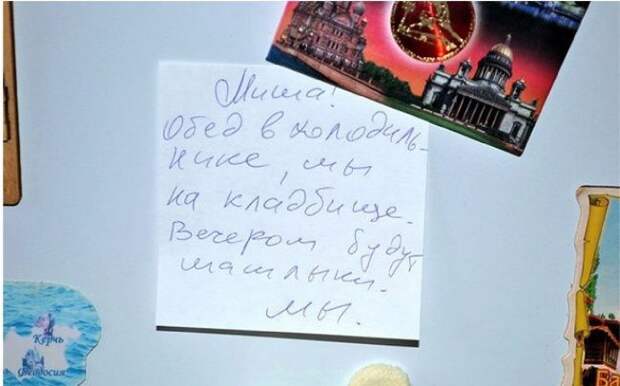 Миша!
Обед в холодиль-
нике, мы
на кладбище.
Вечером будут
шашлыки.
Мы.
Керчь
Феодосия
Ва